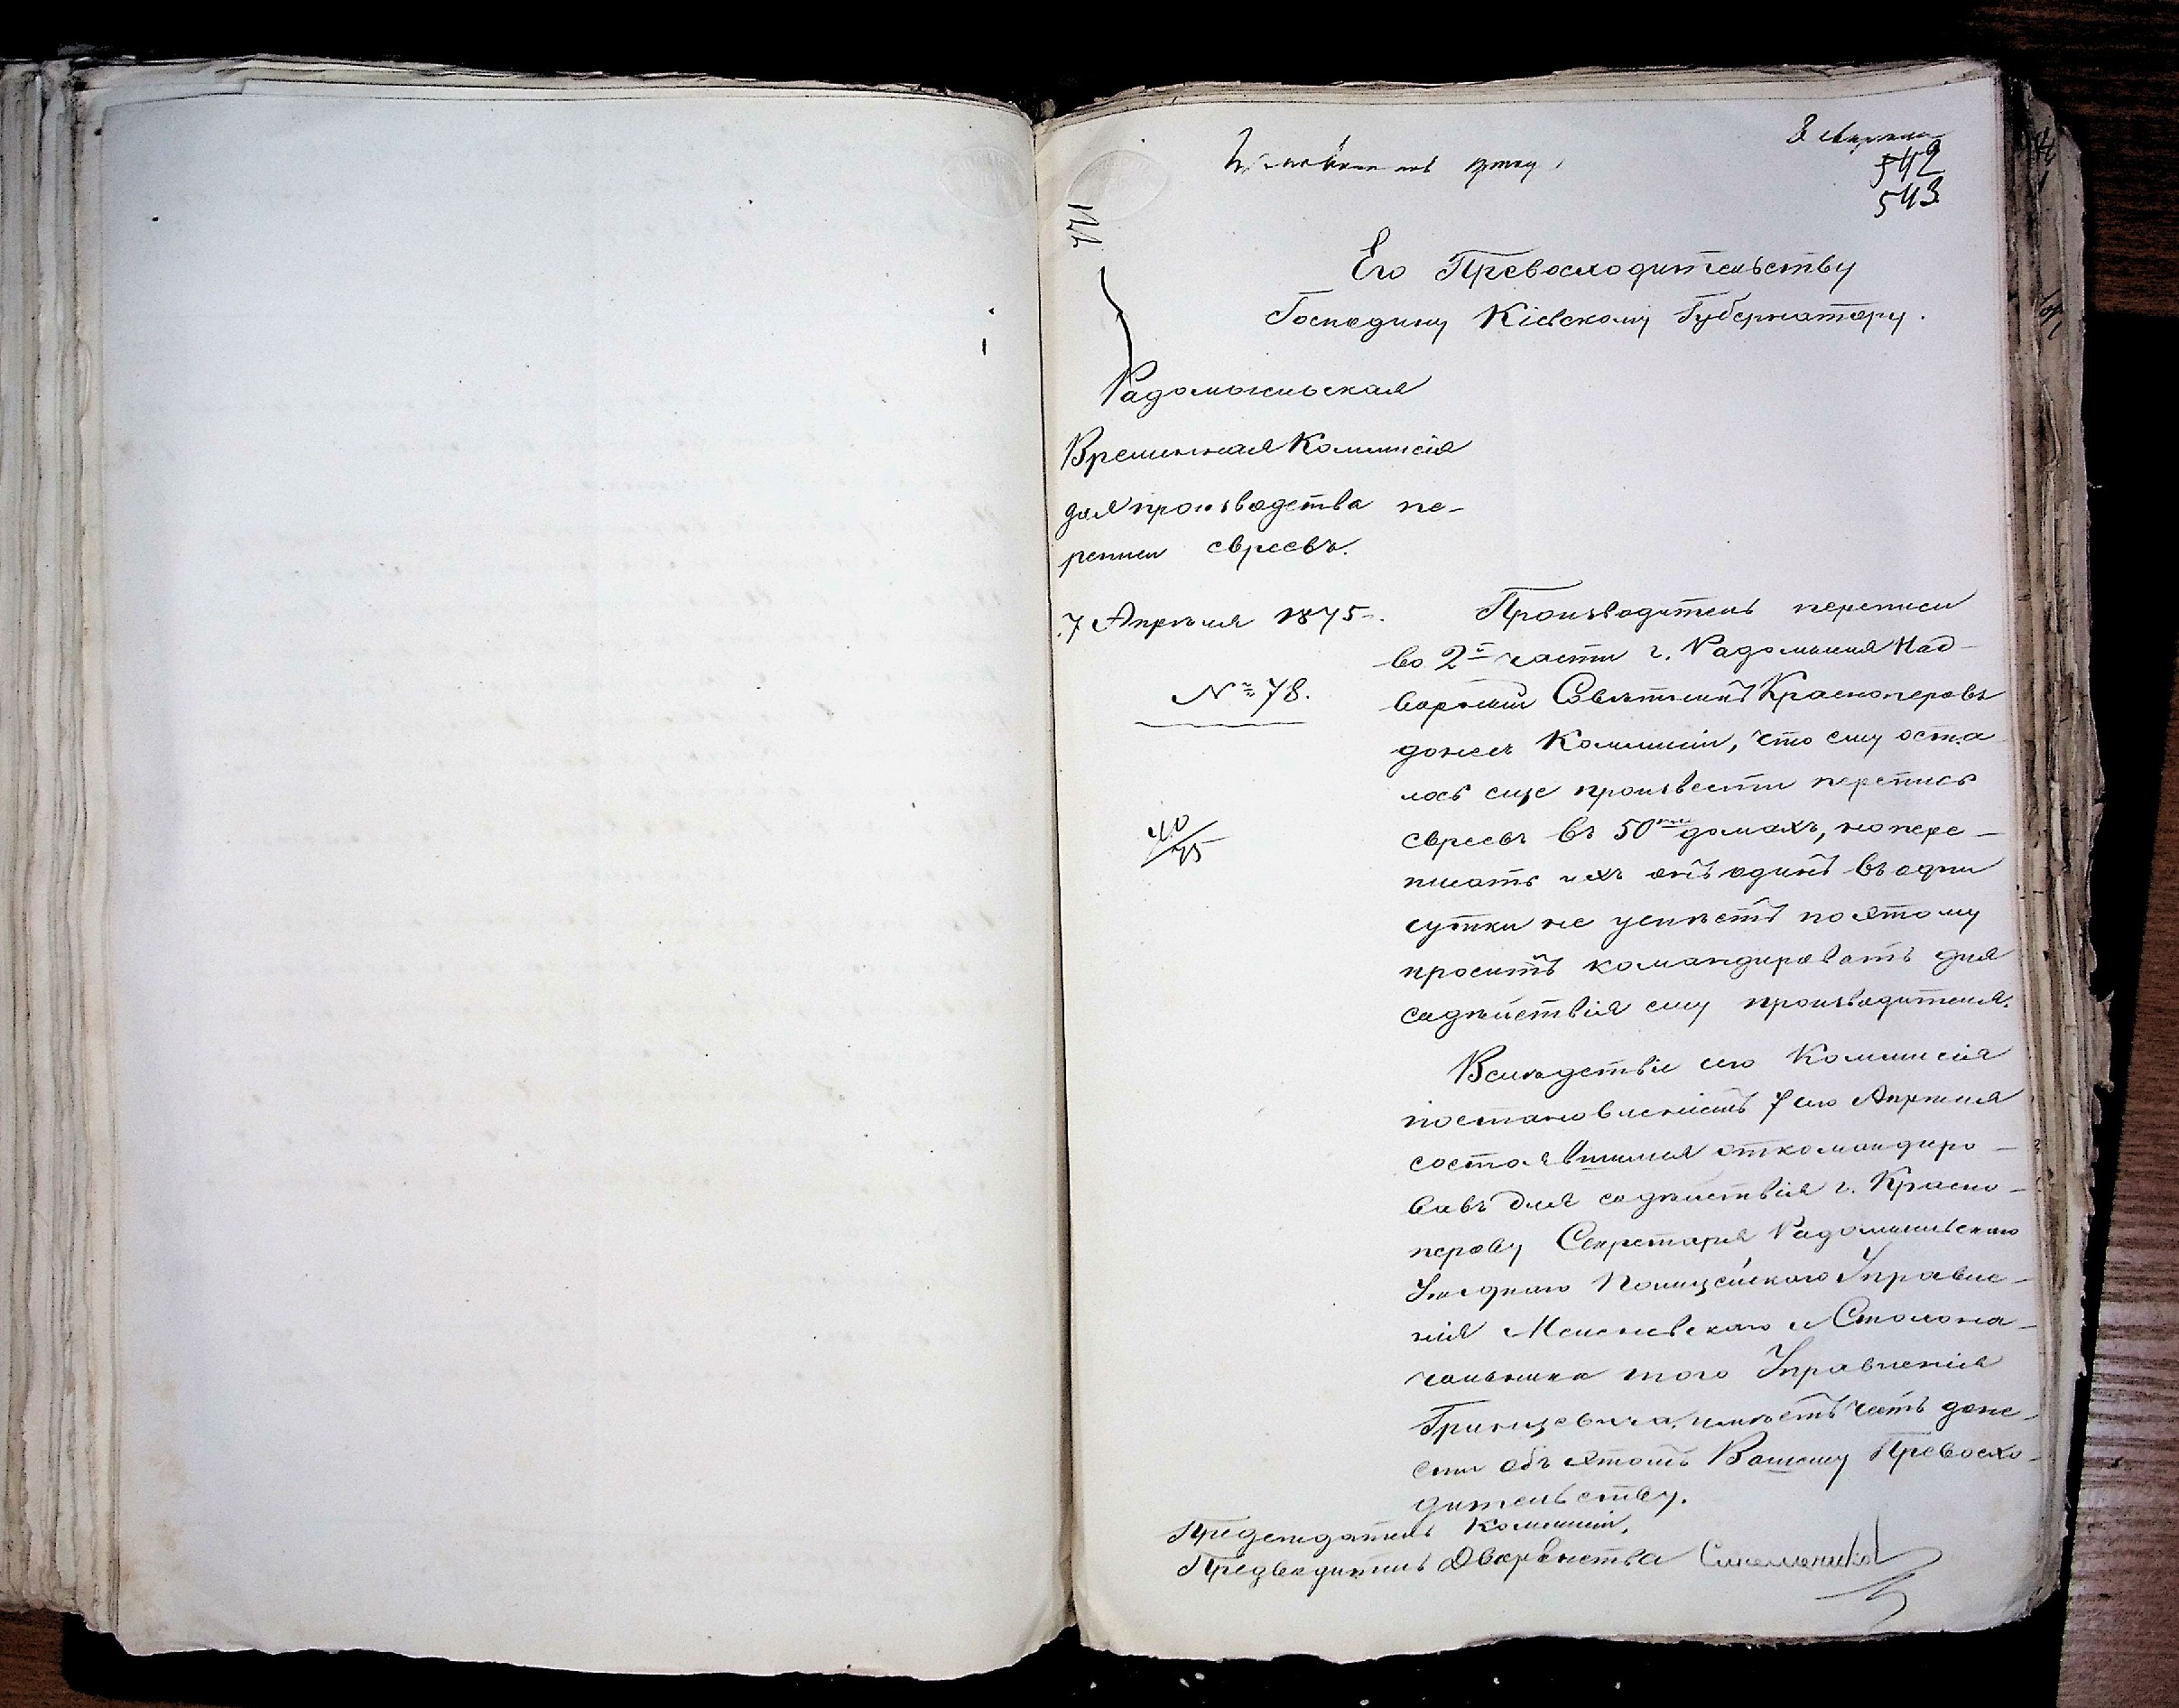 8 Апреля
542
543
Его Превосходительству
Господину Кіевскому Губернатору.
Радомысльская
Временная Коммисія
для производства пе-
реписи евреевъ.
7 Апрѣля 1875.
№ 78.
40/75
Производитель переписи
во 2й части г. Радомысля Над-
ворный Совѣтникъ Красноперовъ
донесъ Коммисіи, что ему оста
лось еще произвести перепись
евреевъ въ 50ти домахъ, но пере-
писать ихъ онъ одинъ въ одни
сутки не успѣетъ поэтому
проситъ командировать для
содѣйствія ему производителя.
Вслѣдствіе сего Коммисія
постановленіемъ 7 сего Апрѣля
состоявшимся откомандиро-
вавъ для содѣйствія г. Красно-
перову Секретаря Радомысльскаго
Уѣзднаго Полицейскаго Управле-
нія и Столона-
чальника того Управленія
Гринцевича, имѣетъ честь доне-
сти объ этомъ Вашему Превосхо-
дительству.
Предсѣдатель Коммисіи,
Предводитель Дворянства